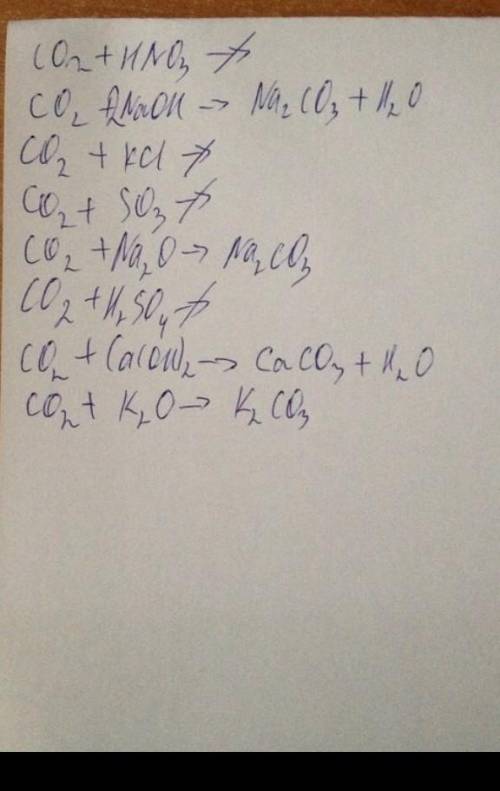 CO₂ + HNO₃ ↛
CO₂ + 2NaOH → Na₂CO₃ + H₂O
CO₂ + KCl ↛
CO₂ + SO₃ ↛
CO₂ + Na₂O → Na₂CO₃
CO₂ + H₂SO₄ ↛
CO₂ + Ca(OH)₂ → CaCO₃ + H₂O
CO₂ + K₂O → K₂CO₃